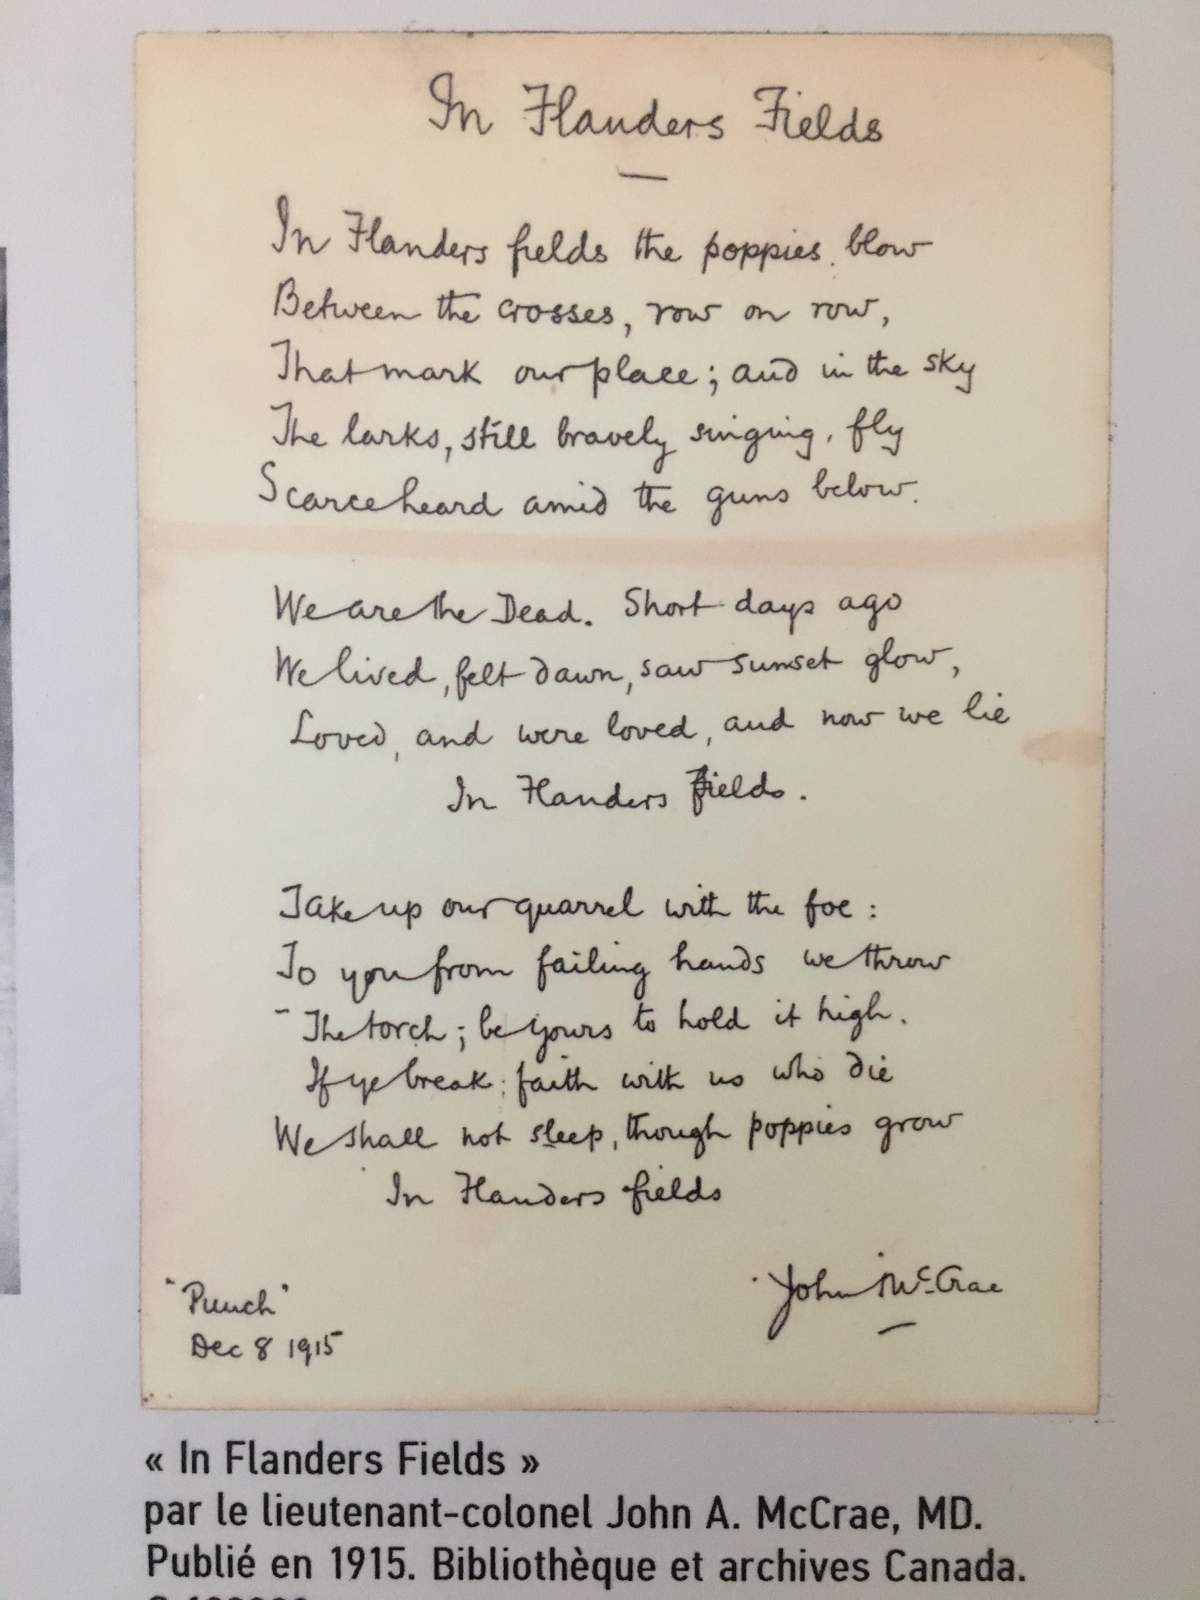 In Flanders Fields
In Flanders fields the poppies blow
Between the crosses, row on row,
That mark our place; and in the sky
The larks, still bravely singing, fly
Scarce heard amid the guns below.
We are the Dead. Short days ago
We lived, felt dawn, saw sunset glow,
Loved, and were loved, and now we lie
In Flanders fields.
Take up our quarrel with the foe:
To you from failing hands we throw
The torch; be yours to hold it high.
If ye break faith with us who die
We shall not sleep, though poppies grow
In Flanders fields
John McCrae
"Punch"
Dec 8 1915
« In Flanders Fields »
par le lieutenant-colonel John A. McCrae, MD.
Publié en 1915. Bibliothèque et archives Canada.